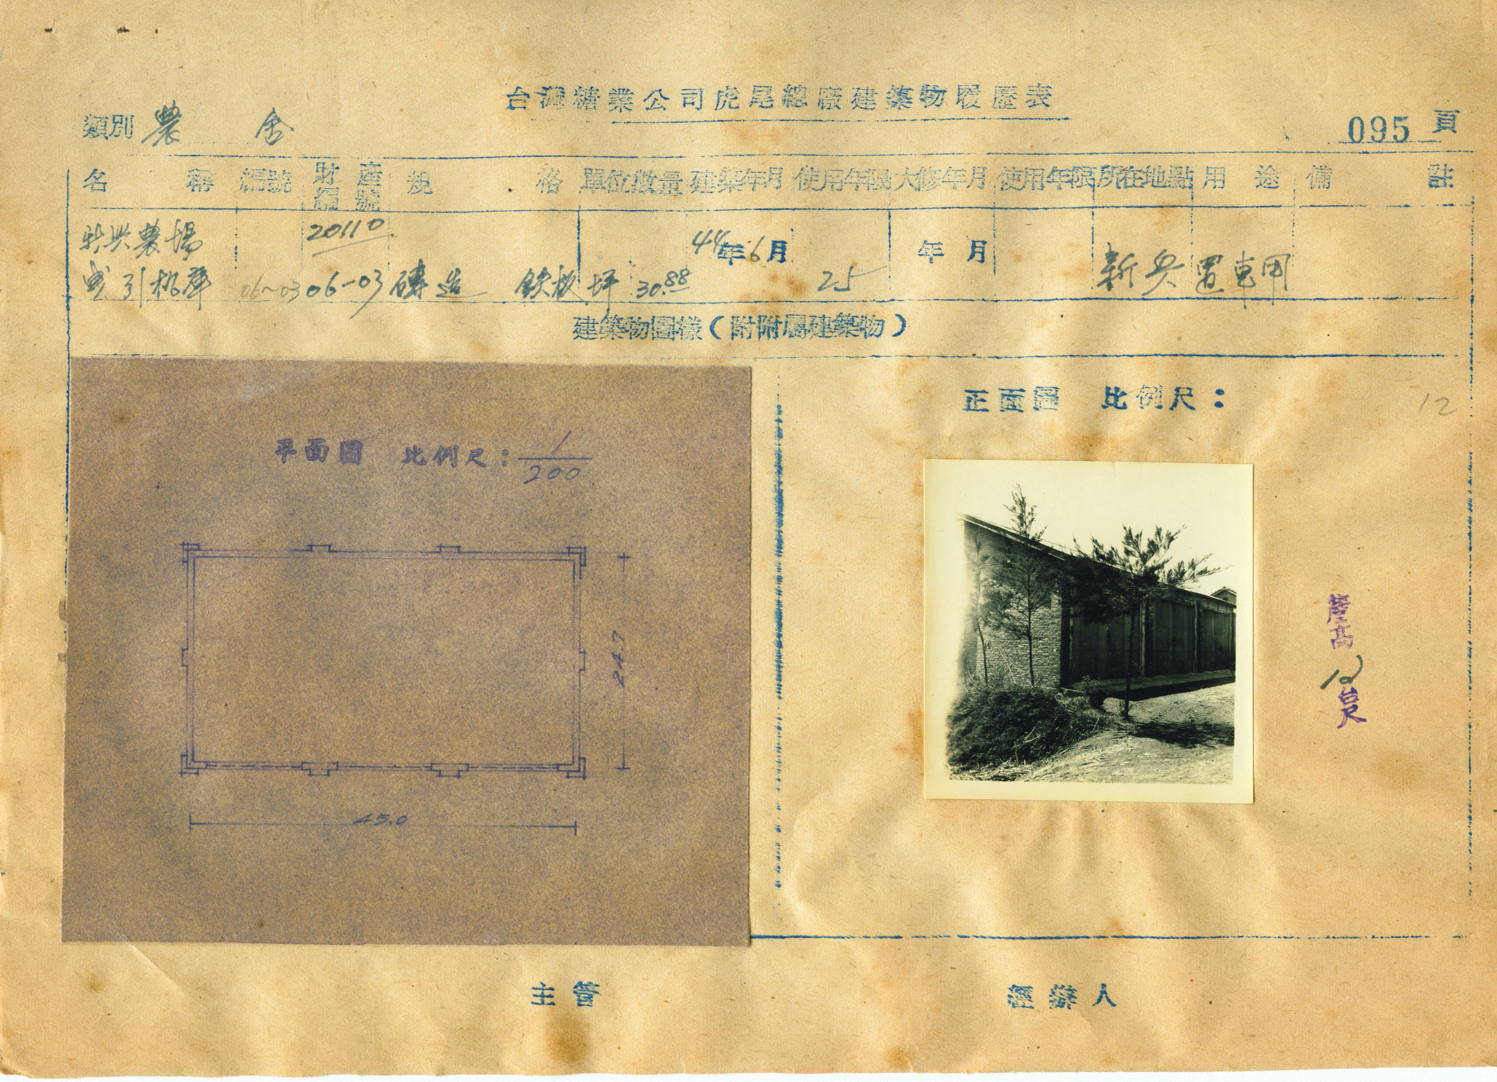 台灣糖業公司虎尾總廠建築物履歷表
類別 農舍
095 頁
名稱 編號 財產編號 規格 單位 數量 建築年月 使用年限 大修年月 使用年限 所在地點 用途 備註
新興農場 20110 44年6月 年 月
曳引机庫 06~03 06-03 磚造 鉄板 坪 30.88 25 新興 置車用
建築物圖樣(附附屬建築物)
平面圖 比例尺:1/200
正面圖 比例尺:
12
24.7
45.0
簷高12台尺
主管
經辦人